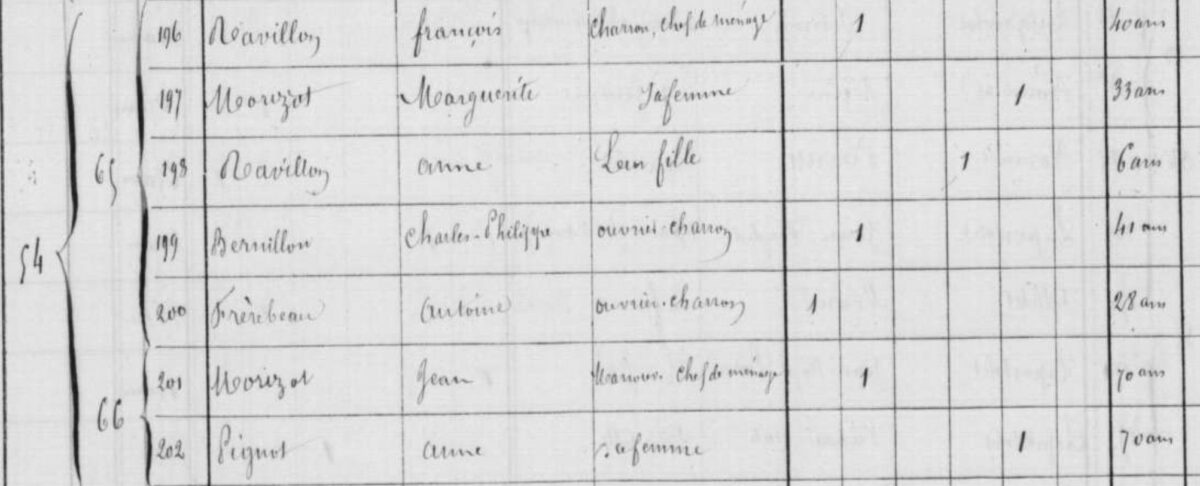 196 Ravillon françois Charron, Chef de ménage 1 40 ans
197 Morizot Marguerite Sa femme 1 33 ans
65 198 Ravillon anne Leur fille 1 6 ans
199 Bernillon Charles-Philippe ouvrier charron 1 41 ans
54
200 Frèrebeau Antoine ouvrier-charron 1 28 ans
201 Morizot Jean Manouv. Chef de ménage 1 70 ans
66
202 Pignot anne sa femme 1 70 ans